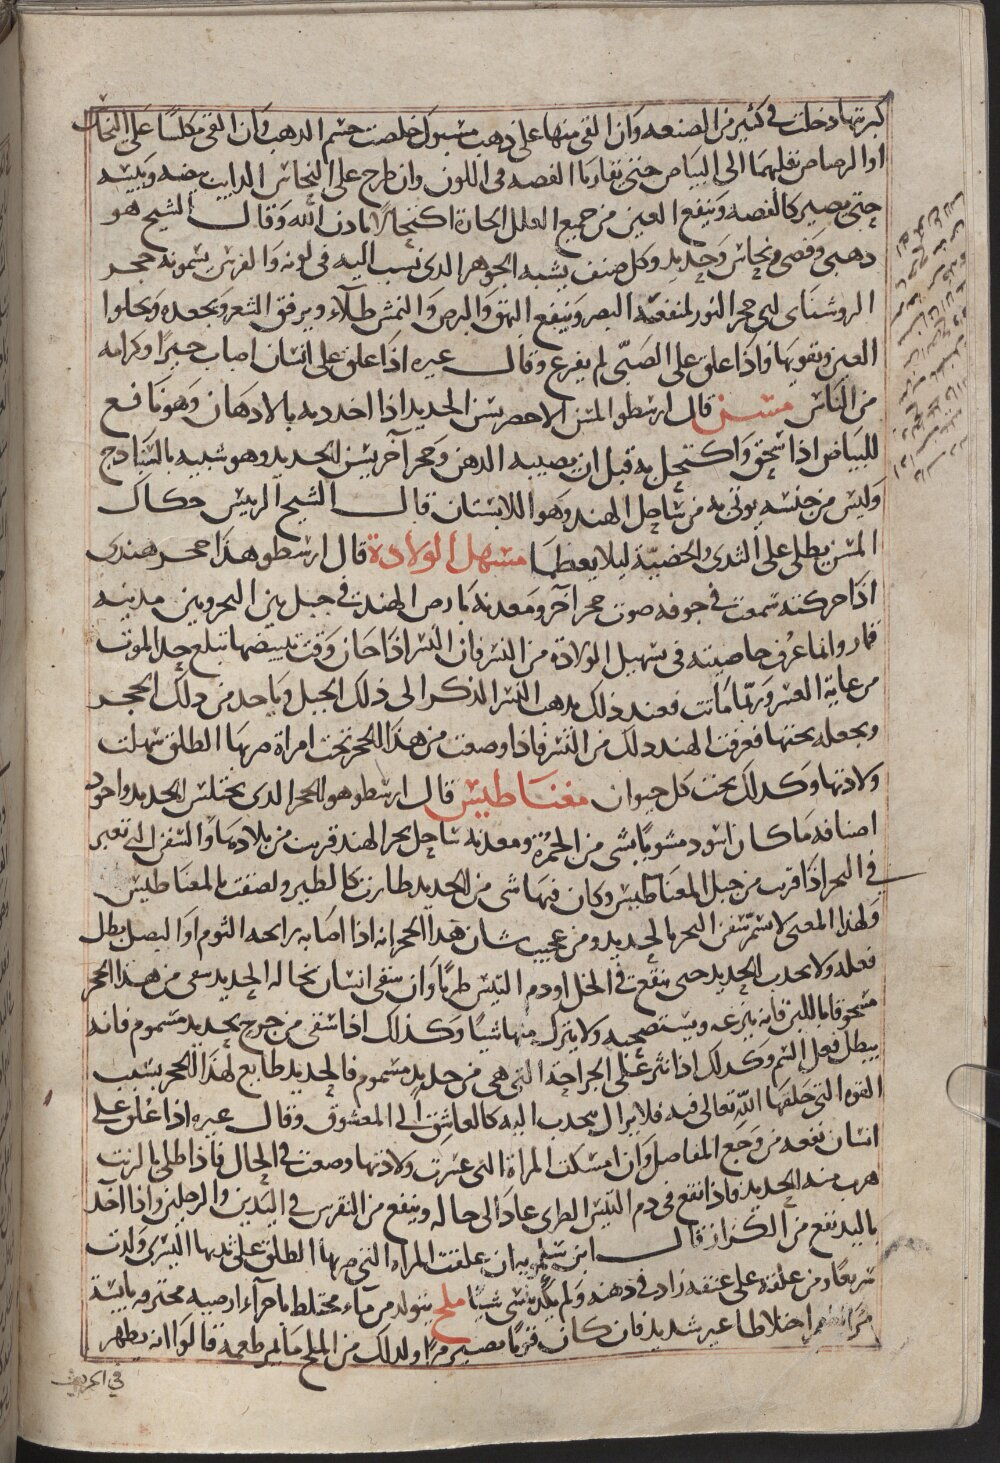 كبرتها دخلت فى كثير من الصنعه وان القى منها على ذهب مسبوك خلصت جسم الدهب وان القى مكلسا على النحاس
او الرصاص نقلهما الى البياض حتى يقاربا الفصه فى اللون وان طرح على النحاس الدايب بيضه ويلينه
حتى يصير كالفصه وينفع العين من جميع العلل الحارة اكتحالا بادن الله وقال الشيخ هو
دهبى وفضى ونحاسى وحديدى وكل صنف يشبه الجوهر الدى نسب اليه فى لونه والفرس يسمونه حجر
الروشناى اى حجر النور لمنفعته البصر وينفع البهق والبرص والنمش طلاء ويرفق الشعر ويجعده ويجلوا
العين ويقويها واذا علق على الصبى لم يفزع وقال عيره اذا علق على انسان اصاب خيرا وكرامه
من الناس مسن قال ارسطو المسن الاحصر يسن الحديد اذا اخد ده بالادهان وهو نافع
للبياض اذا سحق واكتحل به قبل ان يصيبه الدهن وحجر آخر يسن الحديد وهو شبيه بالسنادج
وليس من جنسه يوتى به من ساحل الهند وهو اللابستان قال الشيخ الرييس حكاك
المسن يطلى على الثدى والخصية ليلا يعظما مسهل الولادة قال ارسطو هذا حجر هندى
اذا حركته سمعت فى جوفه صوت حجر آخر ومعدنه بارص الهند فى جبل بين البحر وبين مدينه
قمار وانما عرف خاصيته فى تسهيل الولادة من النسر فان النسر اذا حان وقت تبييضها تبلغ حد الموت
من غاية العسر وربما ماتت فعند ذلك يدهب النسر الذكر الى ذلك الجبل وياخد من دلك الحجر
ويجعله تحتها فعرفت الهند دلك من النسر فاذا وصعت من هذا الحجر تحت امراة ضربها الطلق سهلت
ولادتها وكدلك تحت كل حيوان مغناطيس قال ارسطو هو الحجر الدى يختلس الحديد واجود
اصنافه ما كان اسود مشوبا بشى من الحمرة ومعدنه ساحل بحر الهند قريب من بلادها والسفن التى تعبر
فى البحر اذا قرب من جبل المغناطيس وكان فيها شى من الحديد طارت كالطير ولصقت بالمغناطيس
ولهذا المعنى لا تسمر سفن البحر بالحديد ومن عجيب شان هذا الحجر انه اذا اصابه رايحه الثوم او البصل بطل
فعله ولا يجدب الحديد حتى ينقع فى الخل او دم التيس طريا وان سقى انسان نخاله الحديد سقى من هذا الحجر
مسحوقا باللبن فانه ينزعه ويستصحبه ولا يترك منها شيا وكذلك اذا سقى من جرح بحديد مسموم فانه
يبطل فعل السم وكدلك اذا نثر على الجراحة التى هى من حديد مسموم فالحديد طايع لهذا الحجر بسبب
القوه التى خلقها الله تعالى فيه فلا يزال ينجدب اليه كالعاشق الى المعشوق وقال عيره اذا علق على
انسان نفعه من وجع المفاصل وان امسكت المراة التى عسرت ولادتها وصعت فى الحال فاذا طلى بالزيت
هرب منه الحديد فاذا نقع فى دم التيس الطرى عاد الى حاله وينفع من النقرس فى اليدين والرجلين واذا اخد
باليد نفع من الكزاز قال ابن ان علقت المراه التى ضربها الطلق على ثديها اليسرى ولدت
سريعا ومن علقه على عنقه زاد فى ذهنه ولم شيا ملح يتولد من ماء مختلط باجزاء ارضيه محترقه يابسة
مرة الطعم اختلاطا غير شديد فان كان قويا يصير مرا ولدلك من الملح ما يمر طعمه قالوا انه يظهر
فى الحريف